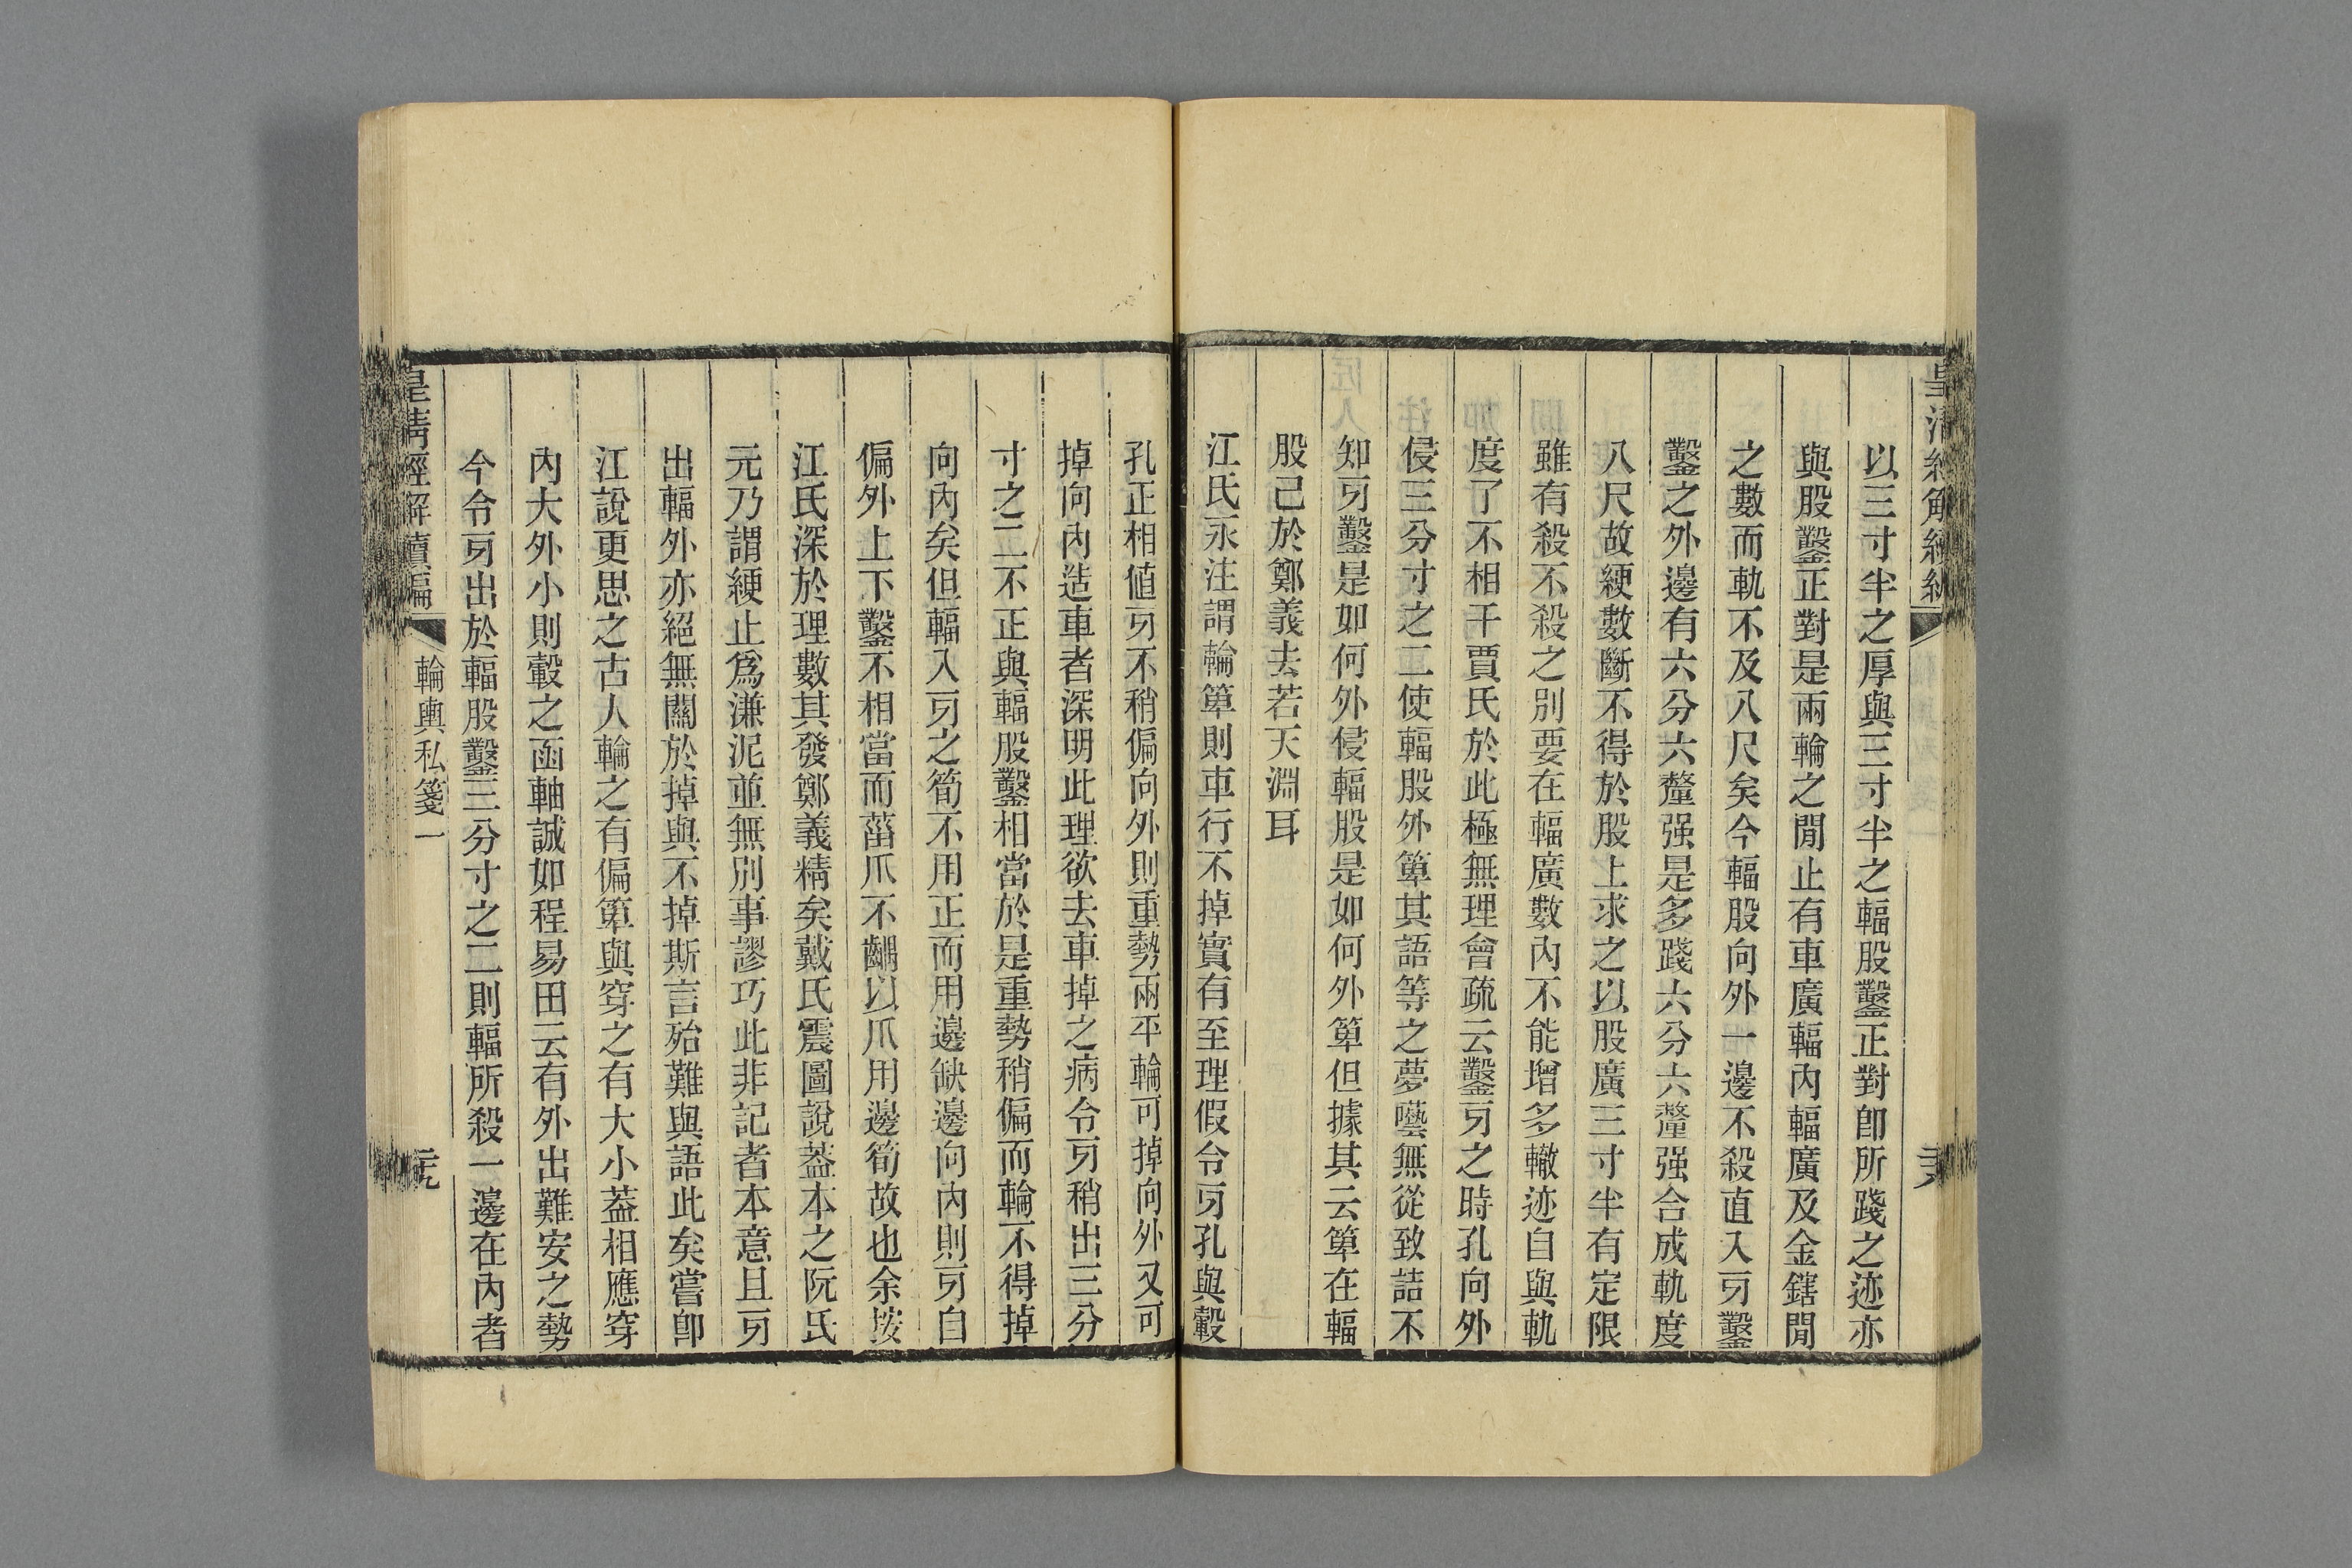 以三寸半之厚與三寸半之輻股鑿正對卽所踐之迹亦
與股鑿正對是兩輪之閒止有車廣輻內輻廣及金鎋閒
之數而軌不及八尺矣今輻股向外一邊不殺直入牙鑿
鑿之外邊有六分六釐强是多踐六分六釐强合成軌度
八尺故綆數斷不得於股上求之以股廣三寸半有定限
雖有殺不殺之別要在輻廣數內不能增多轍迹自與軌
度了不相干賈氏於此極無理會疏云鑿牙之時孔向外
侵三分寸之二使輻股外箄其語等之夢囈無從致詰不
知牙鑿是如何外侵輻股是如何外箄但據其云箄在輻
股己於鄭義去若天淵耳
江氏永注謂輪箄則車行不掉實有至理假令牙孔與轂
孔正相値牙不稍偏向外則重勢兩平輪可掉向外又可
掉向內造車者深明此理欲去車掉之病令牙稍出三分
寸之二不正與輻股鑿相當於是重勢稍偏而輪不得掉
向內矣但輻入牙之筍不用正而用邊缺邊向內則牙自
偏外上下鑿不相當而菑爪不齵以爪用邊筍故也余按
江氏深於理數其發鄭義精矣戴氏震圖說葢本之阮氏
元乃謂綆止爲溓泥並無別事謬巧此非記者本意且牙
出輻外亦絕無關於掉與不掉斯言殆難與語此矣嘗卽
江說更思之古人輪之有偏箄與穿之有大小葢相應穿
內大外小則轂之函軸誠如程易田云有外出難安之勢
今令牙出於輻股鑿三分寸之二則輻所殺一邊在內者
皇淸經解續編
輪輿私箋一